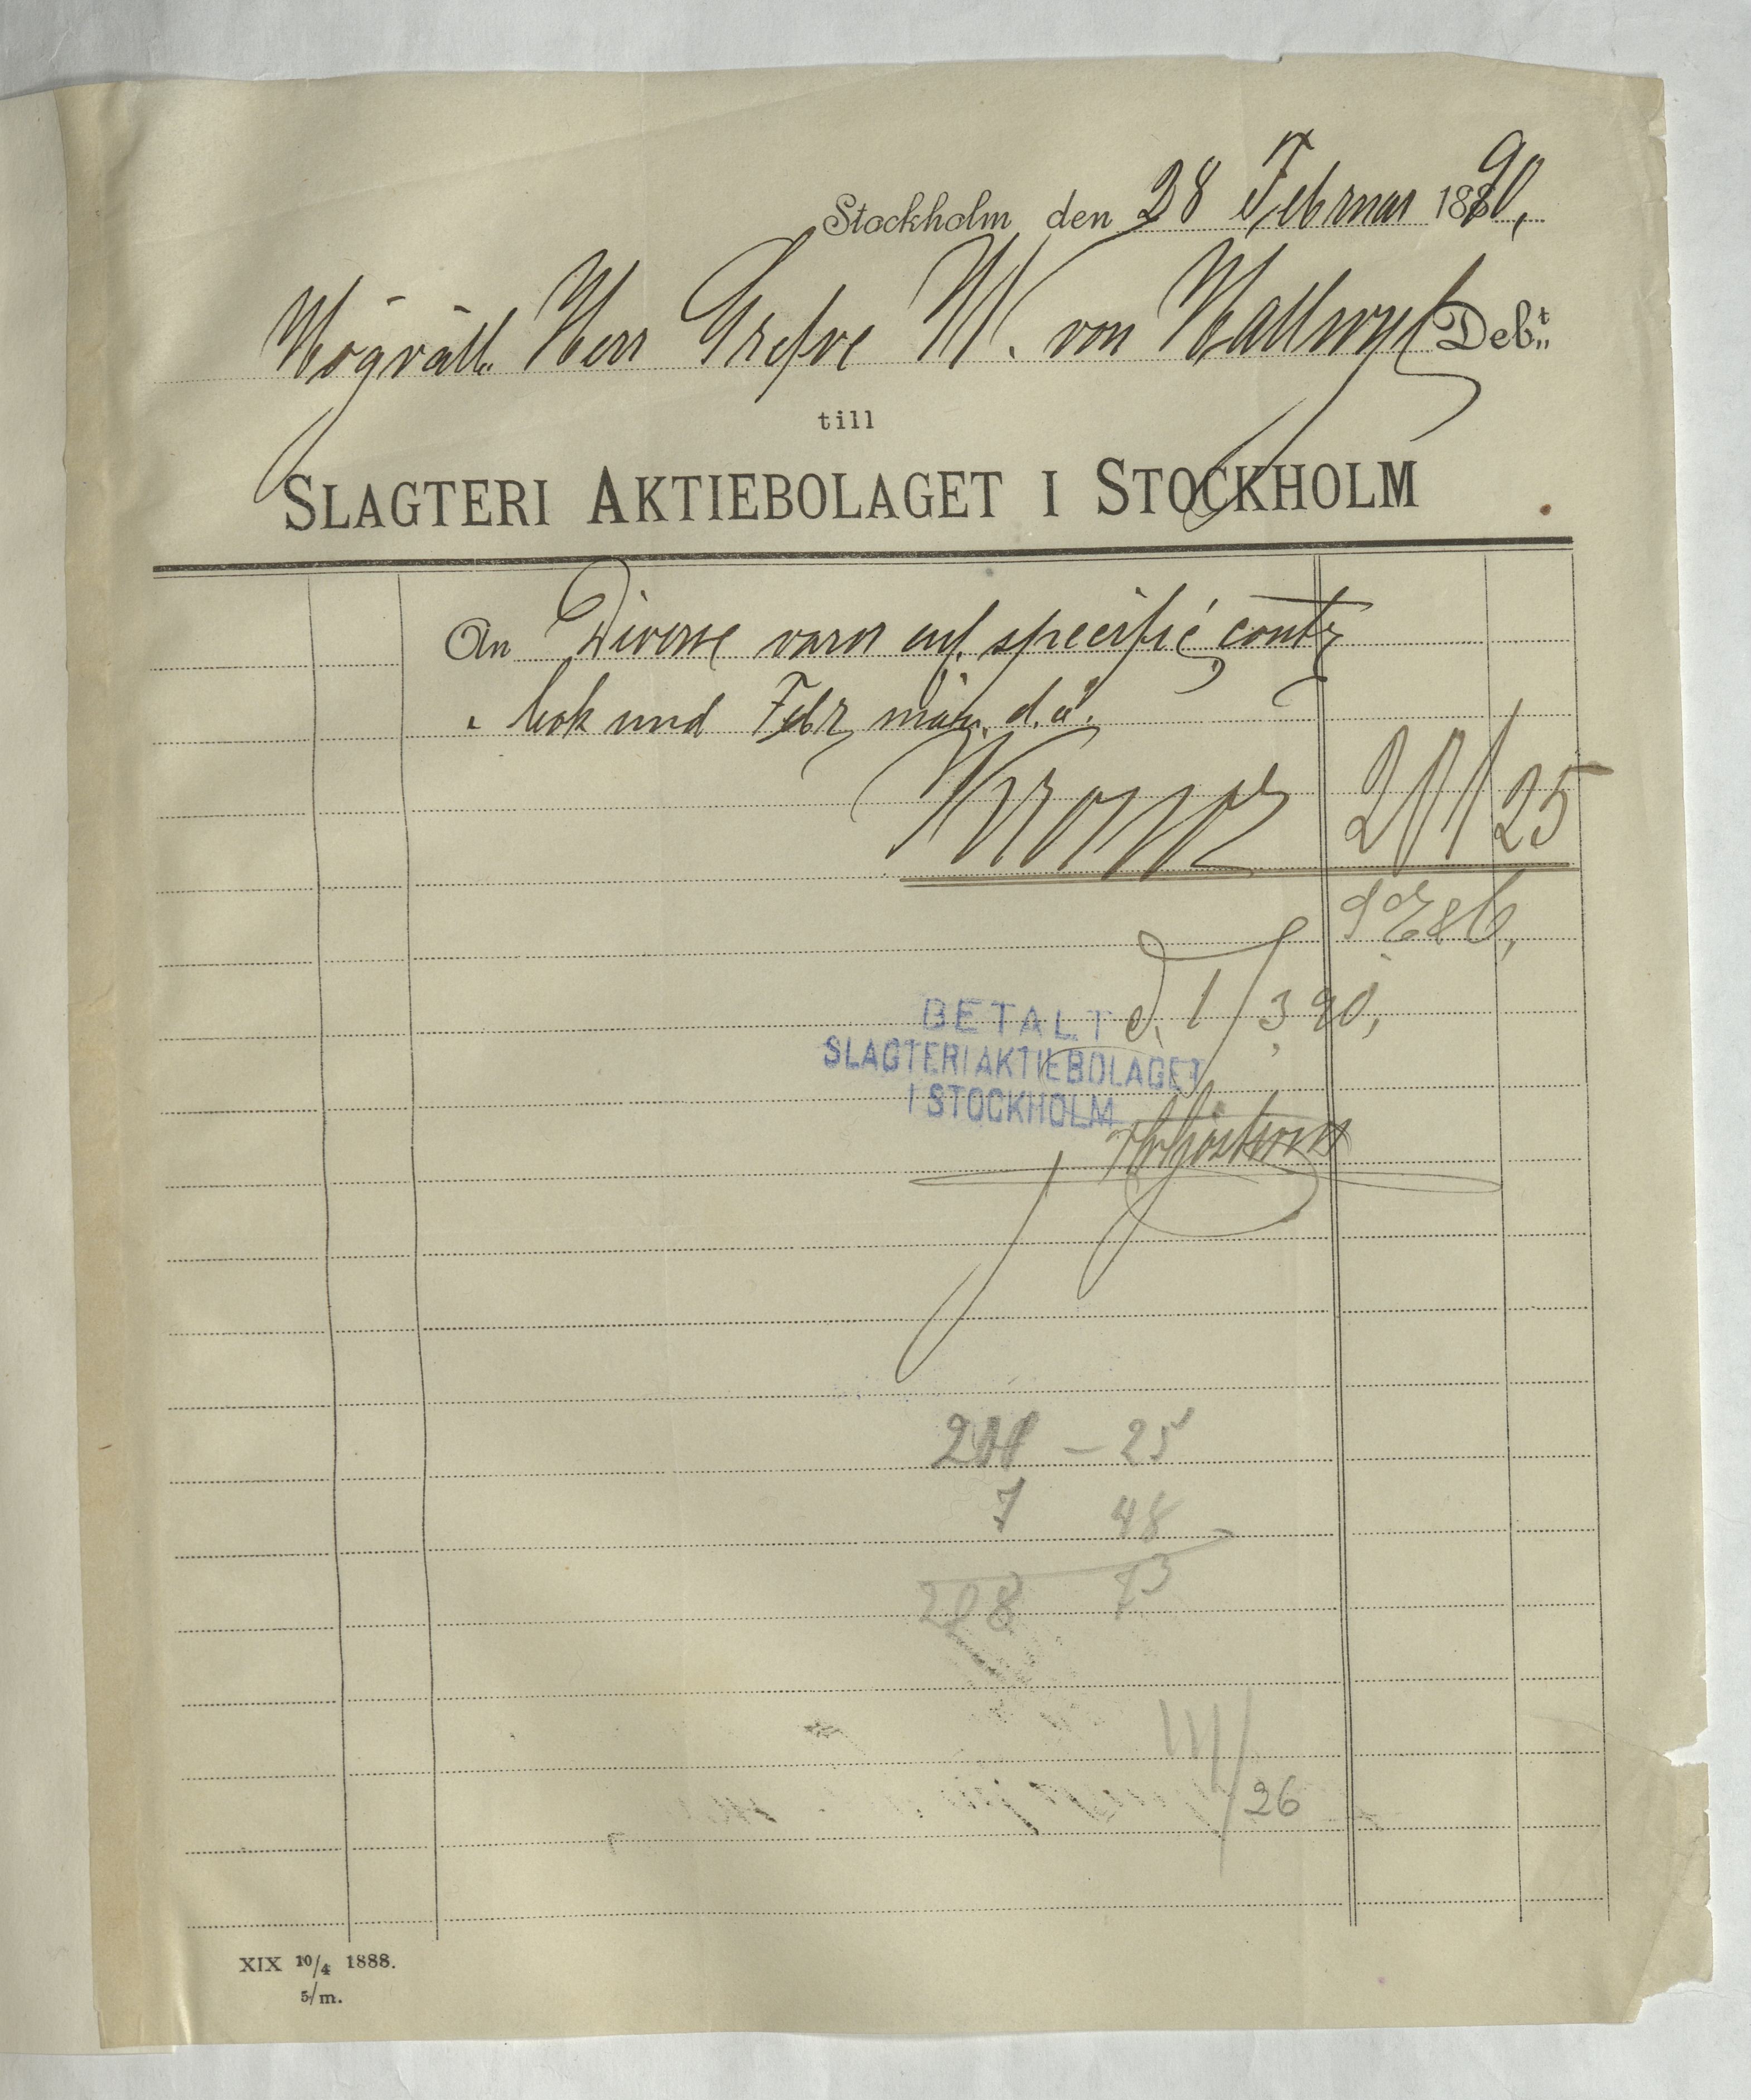 Stockholm den 28 Februar 1890,
Högvälb. Herr Grefve W. von Hallwyl Debt
till
SLAGTERI AKTIEBOLAGET I STOCKHOLM
An Diverse varor enl. specific. contr
bok und Febr mån. d.å.
Kronor 211 25
d. 1/3 90,
BETALT
SLAGTERIAKTIEBOLAGET
I STOCKHOLM
211 – 25
7 48
218 73
26
XIX 10/4 1888.
5/m.